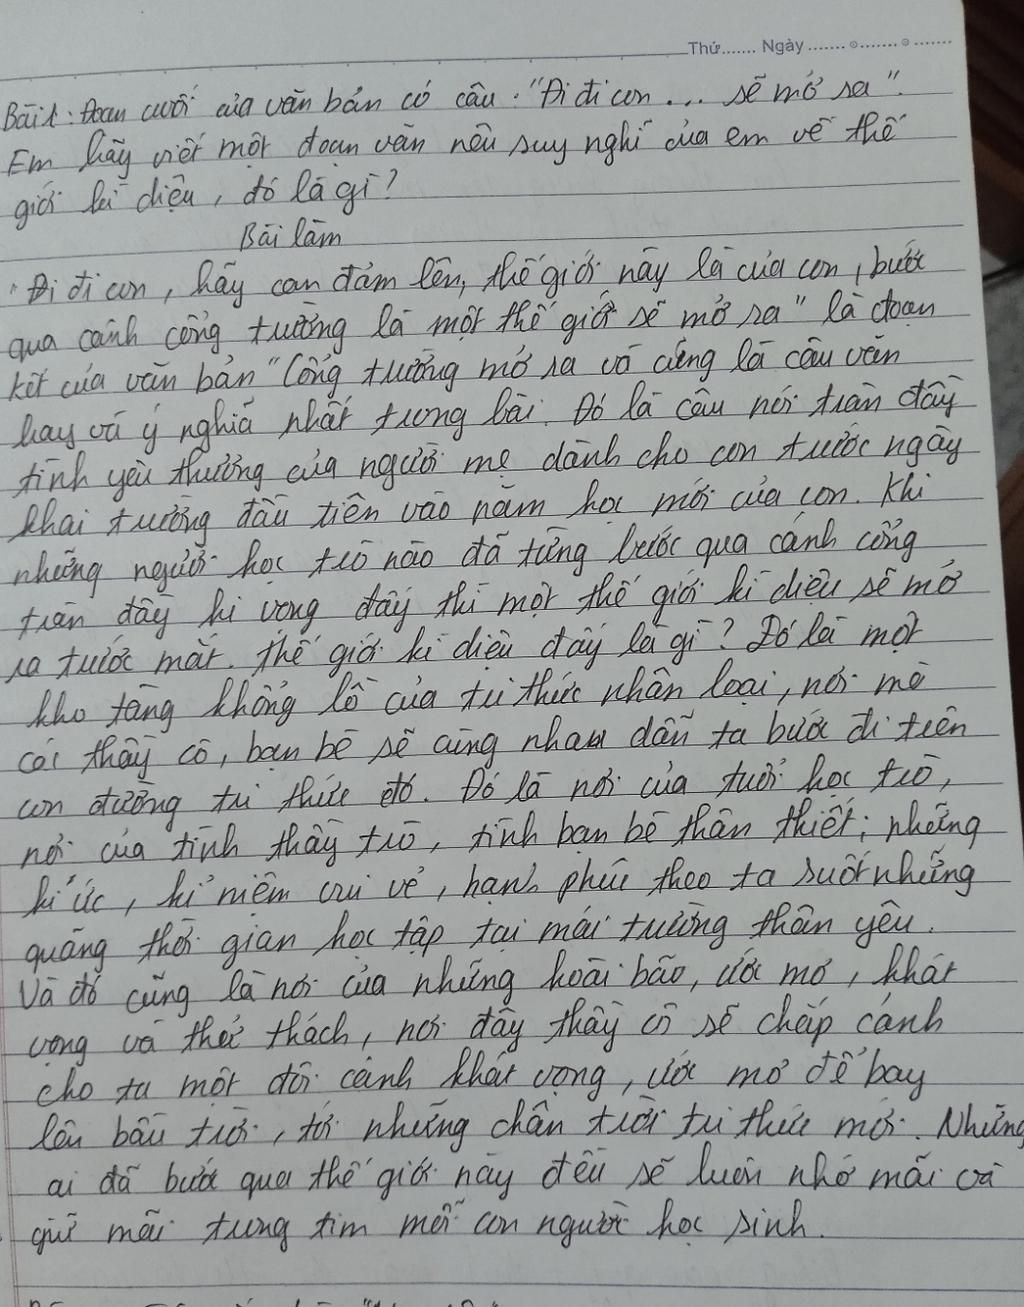 Thứ....... Ngày ....................
Bài 1: Đoạn cuối của văn bản có câu: "Đi đi con ... sẽ mở ra".
Em hãy viết một đoạn văn nêu suy nghĩ của em về thế
giới kì diệu, đó là gì?
Bài làm
"Đi đi con, hãy can đảm lên, thế giới này là của con, bước
qua cánh cổng trường là một thế giới sẽ mở ra" là đoạn
kết của văn bản "Cổng trường mở ra và cũng là câu văn
hay và ý nghĩa nhất trong bài. Đó là câu nói tràn đầy
tình yêu thương của người mẹ dành cho con trước ngày
khai trường đầu tiên vào năm học mới của con. Khi
những người học trò nào đã từng bước qua cánh cổng
tràn đầy hi vọng đấy thì một thế giới kì diệu sẽ mở
ra trước mắt. Thế giới kì diệu đấy là gì? Đó là một
kho tàng khổng lồ của tri thức nhân loại, nơi mà
các thầy cô, bạn bè sẽ cùng nhau dẫn ta bước đi trên
con đường tri thức đó. Đó là nơi của tuổi học trò,
nơi của tình thầy trò, tình bạn bè thân thiết; những
kí ức, kỉ niệm vui vẻ, hạnh phúc theo ta suốt những
quãng thời gian học tập tại mái trường thân yêu.
Và đó cũng là nơi của những hoài bão, ước mơ, khát
vọng và thử thách, nơi đây thầy cô sẽ chắp cánh
cho ta một đôi cánh khát vọng, ước mơ để bay
lên bầu trời, tới những chân trời tri thức mới. Những
ai đã bước qua thế giới này đều sẽ luôn nhớ mãi và
giữ mãi trong tim mỗi con người học sinh.